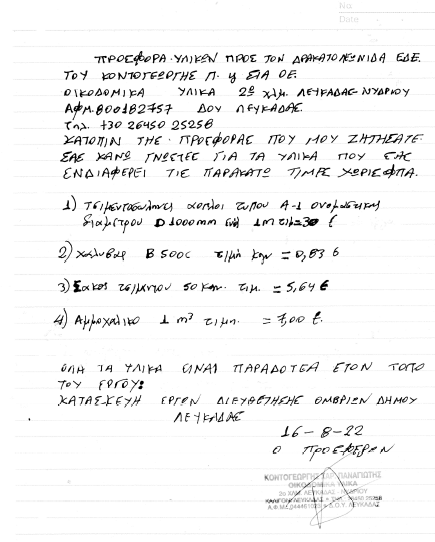 No
Date
ΠΡΟΣΦΟΡΑ ΥΛΙΚΩΝ ΠΡΟΣ ΤΟΝ ΔΡΑΚΑΤΟ ΛΕΩΝΙΔΑ ΕΔΕ.
ΤΟΥ ΚΟΝΤΟΓΕΩΡΓΗΣ Π. ΣΙΑ ΟΕ.
ΟΙΚΟΔΟΜΙΚΑ ΥΛΙΚΑ 2ο χλμ. ΛΕΥΚΑΔΑΣ-ΝΥΔΡΙΟΥ
ΑΦΜ.800182757 ΔΟΥ ΛΕΥΚΑΔΑΣ.
Τηλ. +30 26450 25258
ΚΑΤΟΠΙΝ ΤΗΣ ΠΡΟΣΦΟΡΑΣ ΠΟΥ ΜΟΥ ΖΗΤΗΣΑΤΕ
ΣΑΣ ΚΑΝΩ ΓΝΩΣΤΕΣ ΓΙΑ ΤΑ ΥΛΙΚΑ ΠΟΥ ΣΑΣ
ΕΝΔΙΑΦΕΡΕΙ ΤΙΣ ΠΑΡΑΚΑΤΩ ΤΙΜΕΣ ΧΩΡΙΣ ΦΠΑ.
1) Τσιμεντοσωλήνες αοπλοι τυπου Α-1 ονομαστικης
διαμετρου D1000mm 1m τιμ=30 €
2) Χαλυβας B500c τιμή κgr =0,83 €
3) Σακος τσιμεντου 50 κgr. τιμ. =5,64 €
4) Αμμοχαλικο 1 m³ τιμη. =7,00 €.
ΟΛΗ ΤΑ ΥΛΙΚΑ ΕΙΝΑΙ ΠΑΡΑΔΟΤΕΑ ΣΤΟΝ ΤΟΠΟ
ΤΟΥ ΕΡΓΟΥ:
ΚΑΤΑΣΚΕΥΗ ΕΡΓΩΝ ΔΙΕΥΘΕΤΗΣΗΣ ΟΜΒΡΙΩΝ ΔΗΜΟΥ
ΛΕΥΚΑΔΑΣ
16-8-22
Ο ΠΡΟΣΦΕΡΩΝ
ΚΟΝΤΟΓΕΩΡΓΗΣ ΠΑΝΑΓΙΩΤΗΣ
ΟΙΚΟΔΟΜΙΚΑ ΥΛΙΚΑ
2ο ΧΛΜ. ΛΕΥΚΑΔΑΣ - ΝΥΔΡΙΟΥ
ΛΕΥΚΑΔΑΣ Τηλ. 26450 25258
Α.Φ.Μ. Δ.Ο.Υ. ΛΕΥΚΑΔΑΣ